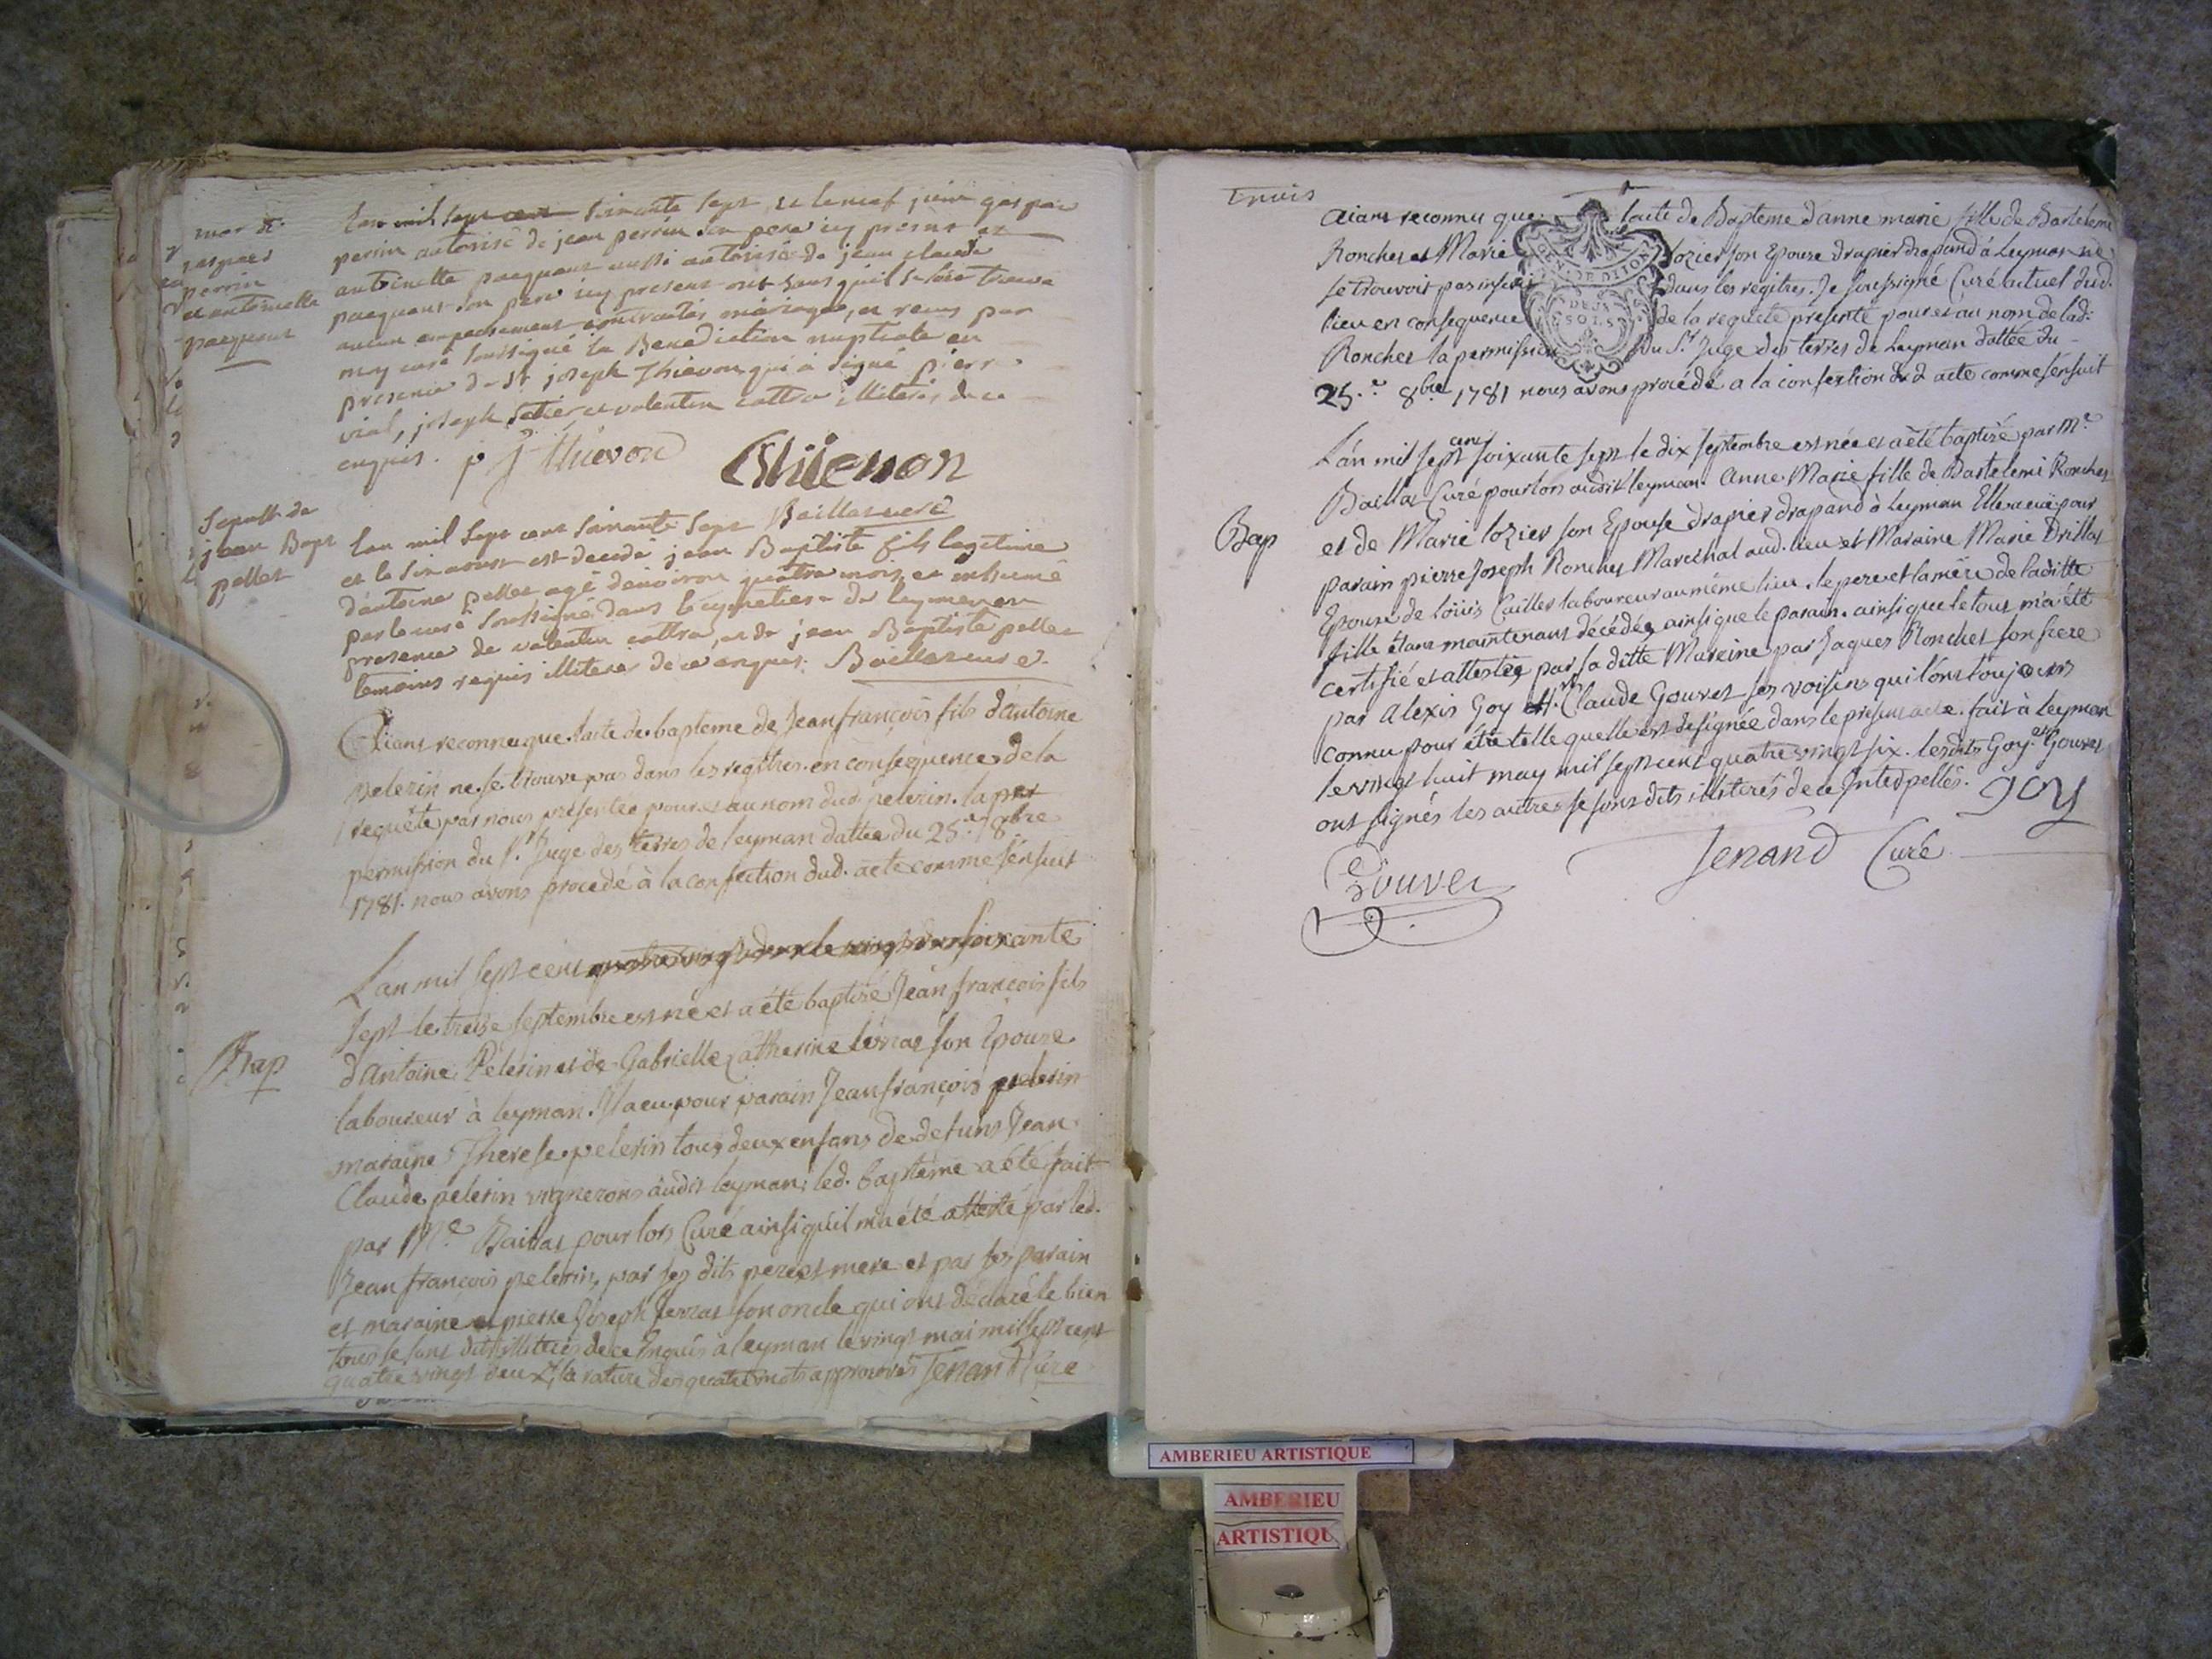 mar de
gaspard
perrin
et antoinette
pacquant
L'an mil sept cent soixante sept et le neuf juin gaspar
perrin autorisé de jean perrin son pere icy present et
antoinette pacquant aussi autorisée de jean claude
pacquant son pere icy present ont sans qu'il se soit trouvé
aucun empechement contractés mariage, et receus par
moy curé soussigné la Benediction nuptiale en
presence de Sr joseph Thievon qui a signé pierre
vial, joseph et valentin cottra illiterés de ce
enquis. J Thievon
Thievon
Baillat curé
Sepult de
jean Bapt
pellet
L'an mil sept cent soixante sept
et le six aoust est decedé jean Baptiste fils legitime
d'antoine pellet agé d'environ quatre mois et inhumé
par le curé soussigné dans le cymetiere de leymen en
presence de valentin cottra, et de jean Baptiste pellet
temoins requis illiteré de ce enquis. Baillat curé.
Aiant reconnu que l'acte de bapteme de Jean françois fils d'Antoine
pelerin ne se trouve pas dans les registres en conséquence de la
requête par nous présentée pour et au nom dud. pelerin. la per
permission du Sr. Juge des terres de leyman dattée du 25.e 8bre
1781. nous avons procedé à la confection dud. acte comme s'ensuit
Bap
L'an mil sept cent quatre vingt deux le vingt soixante
sept le treise septembre est né et a été baptisé Jean françois fils
d'Antoine Pelerin et de Gabrielle Catherine son Epouse
laboureur à leyman. Il a eu pour parain Jean françois pelerin
maraine Therese pelerin tous deux enfans de defunt Jean
Claude pelerin vignerons audit leyman; led. baptême a été fait
par Me Baillat pour lors Curé ainsi qu'il m'a été attesté par led.
Jean françois pelerin, par ses dits pere et mere et par ses parain
et maraine et pierre Joseph son oncle qui ont déclaré le bien
tous se sont dit illiterés de ce Enquis a leyman le vingt mai mil sept cent
quatre vingt deux, la rature des quatre mots approuvés Jenand Curé
trois
GEN. DE DIJON
DEUX
SOLS
Aiant reconnu que l'acte de Bapteme d'anne marie fille de Bartelemi
Ronchet et Marie lozier son Epouse drapier drapand à Leyman ne
se trouvoit pas inseré dans les registres. Je soussigné Curé actuel dud.
lieu en consequence de la requête presenté pour et au nom de lad:
Ronchet la permission du Sr. Juge des terres de Leyman dattée du
25.e 8bre 1781 nous avons procédé a la confection dud acte comme s'ensuit
Bap
L'an mil sept cent soixante sept le dix septembre est née et a été baptisé par Me
Baillat Curé pour lors audit leyman. Anne Marie fille de Bartelemi Ronchet
et de Marie lozier son Epouse drapier drapand à leyman Elle a eu pour
parain pierre Joseph Ronchet Marechal aud. lieu et Maraine Marie Drillat
Epouse de loüis Caillet laboureur au même lieu. le pere et la mere de laditte
fille étant maintenant décédés ainsi que le parain. ainsi que le tout m'a été
certifié et attestée par sa ditte Mareine par Jaques Ronchet son frere
par Alexis Goy et Claude Gouvet ses voisins qui l'ont toujours
connu pour être telle quelle est designée dans le present acte. fait à leyman
le vingt huit may mil sept cent quatre vingt six. lesdits Goy et Gouvet
ont signés les autres se sont dits illiterés de ce Interpellés. Goy
Gouvet
Jenand Curé
AMBERIEU ARTISTIQUE
AMBERIEU
ARTISTIQU